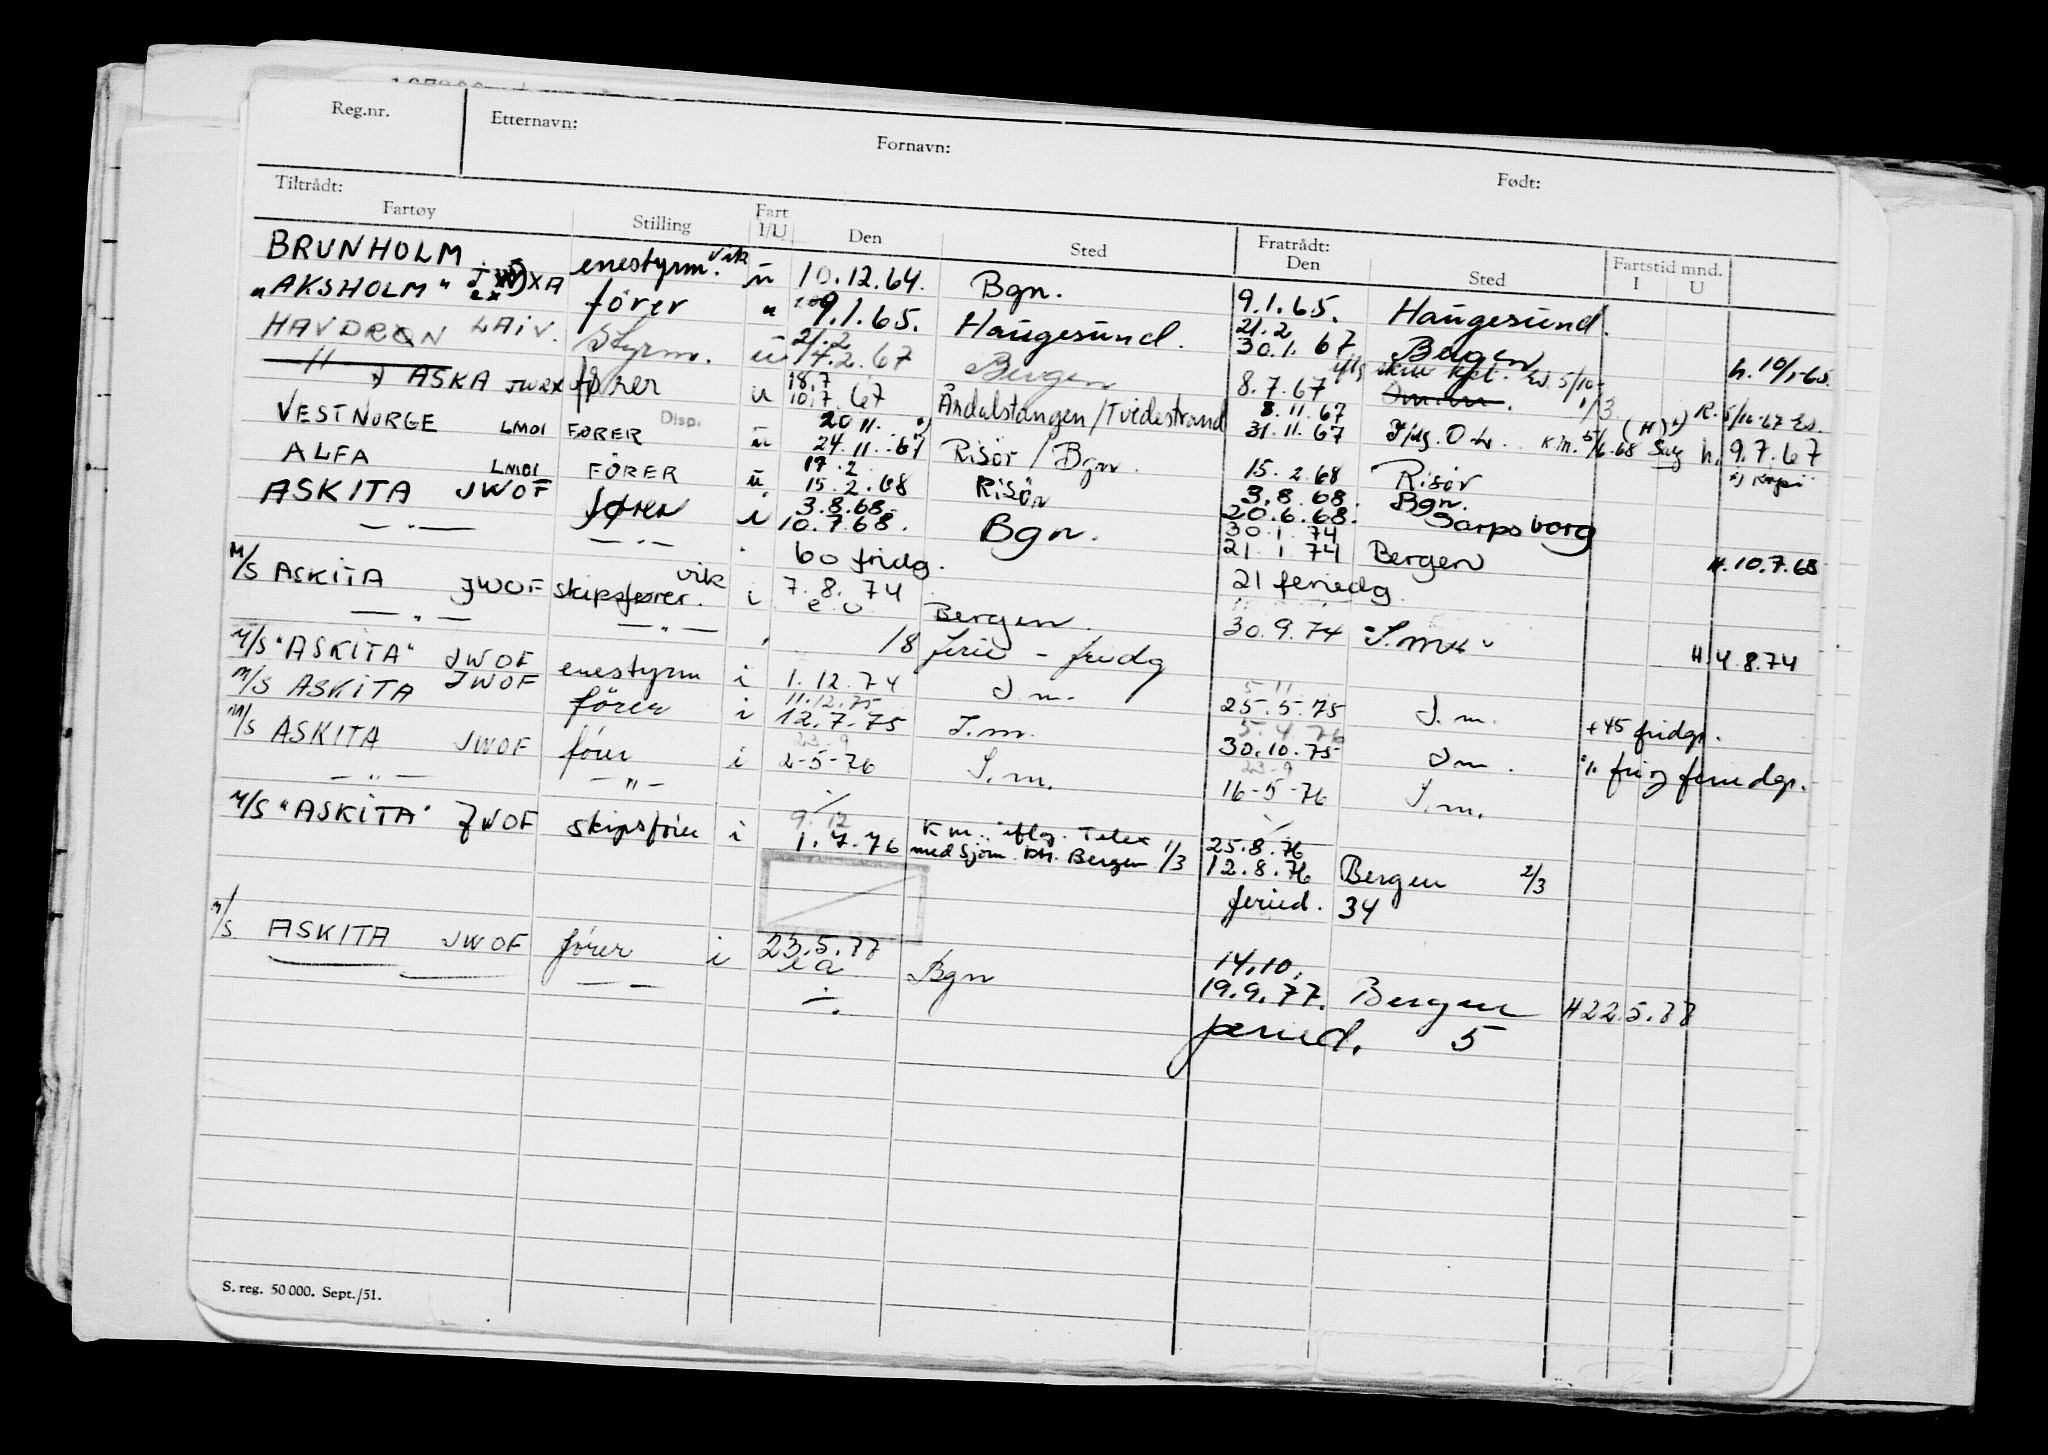 Reg.nr. Etternavn: Fornavn: Født:
Tiltrådt: Fratrådt:
Fartøy Stilling Fart I/U Den Sted Den Sted Fartstid mnd. I U
BRUNHOLM enestyrm. vik ü 10.12.64. Bgn. 9.1.65. Haugesund.
"AKSHOLM" ex fører " 9.1.65. Haugesund. 21.2 30.1.67 Bergen h. 10/1-65.
HAVDRØN LAIV. Styrm. ü 21.2 14.2.67 Bergen
" ASKA fører u 18.7 10.7.67 Åndalstangen/Tvedestrand 8.7.67 1/3 R. 5/10-67
VESTNORGE LMOI FØRER Disp. ü 20 11. 24.11.67 Risør / Bgn. 8.11.67 31.11.67 h. 9.7.67
ALFA LMOI FØRER ü 17.2 15.2.68 Risör 15.2.68 Risör
ASKITA JWOF fører i 3.8.68. 10.7.68. Bgn. 3.8.68. 20.6.68. Bgn. Sarpsborg
— " — — " — 60 fridg. 30.1.74 21.1.74 Bergen H. 10.7.68
M/S ASKITA JWOF skipsfører. vik i 7.8.74 Bergen. 21 feriedg.
— " — — " — 18 ferie - fridg 30.9.74 "S.m." H 4.8.74
M/S "ASKITA" JWOF enestyrm i 1.12.74 S m.
M/S ASKITA JWOF fører i 11.12.75 12.7.75 S.m. 25.5.75 S.m. +45 fridgr.
M/S ASKITA JWOF fører i 23-9 2-5-76 S.m. 5.4.76 30.10.75 S m. feriedgr.
— " — — " — 23-9 16-5-76 S.m.
M/S "ASKITA" JWOF skipsfører i 9.12 1.7.76 K m. iflg. Telex med Sjøm. Bergen 1/3 25.8.76 12.8.76 Bergen 2/3
feried. 34
M/S ASKITA JWOF fører i 23.5.77 Bgn 14.10. 19.9.77. Bergen H 22.5.77
— — feried. 5
S. reg. 50 000. Sept./51.